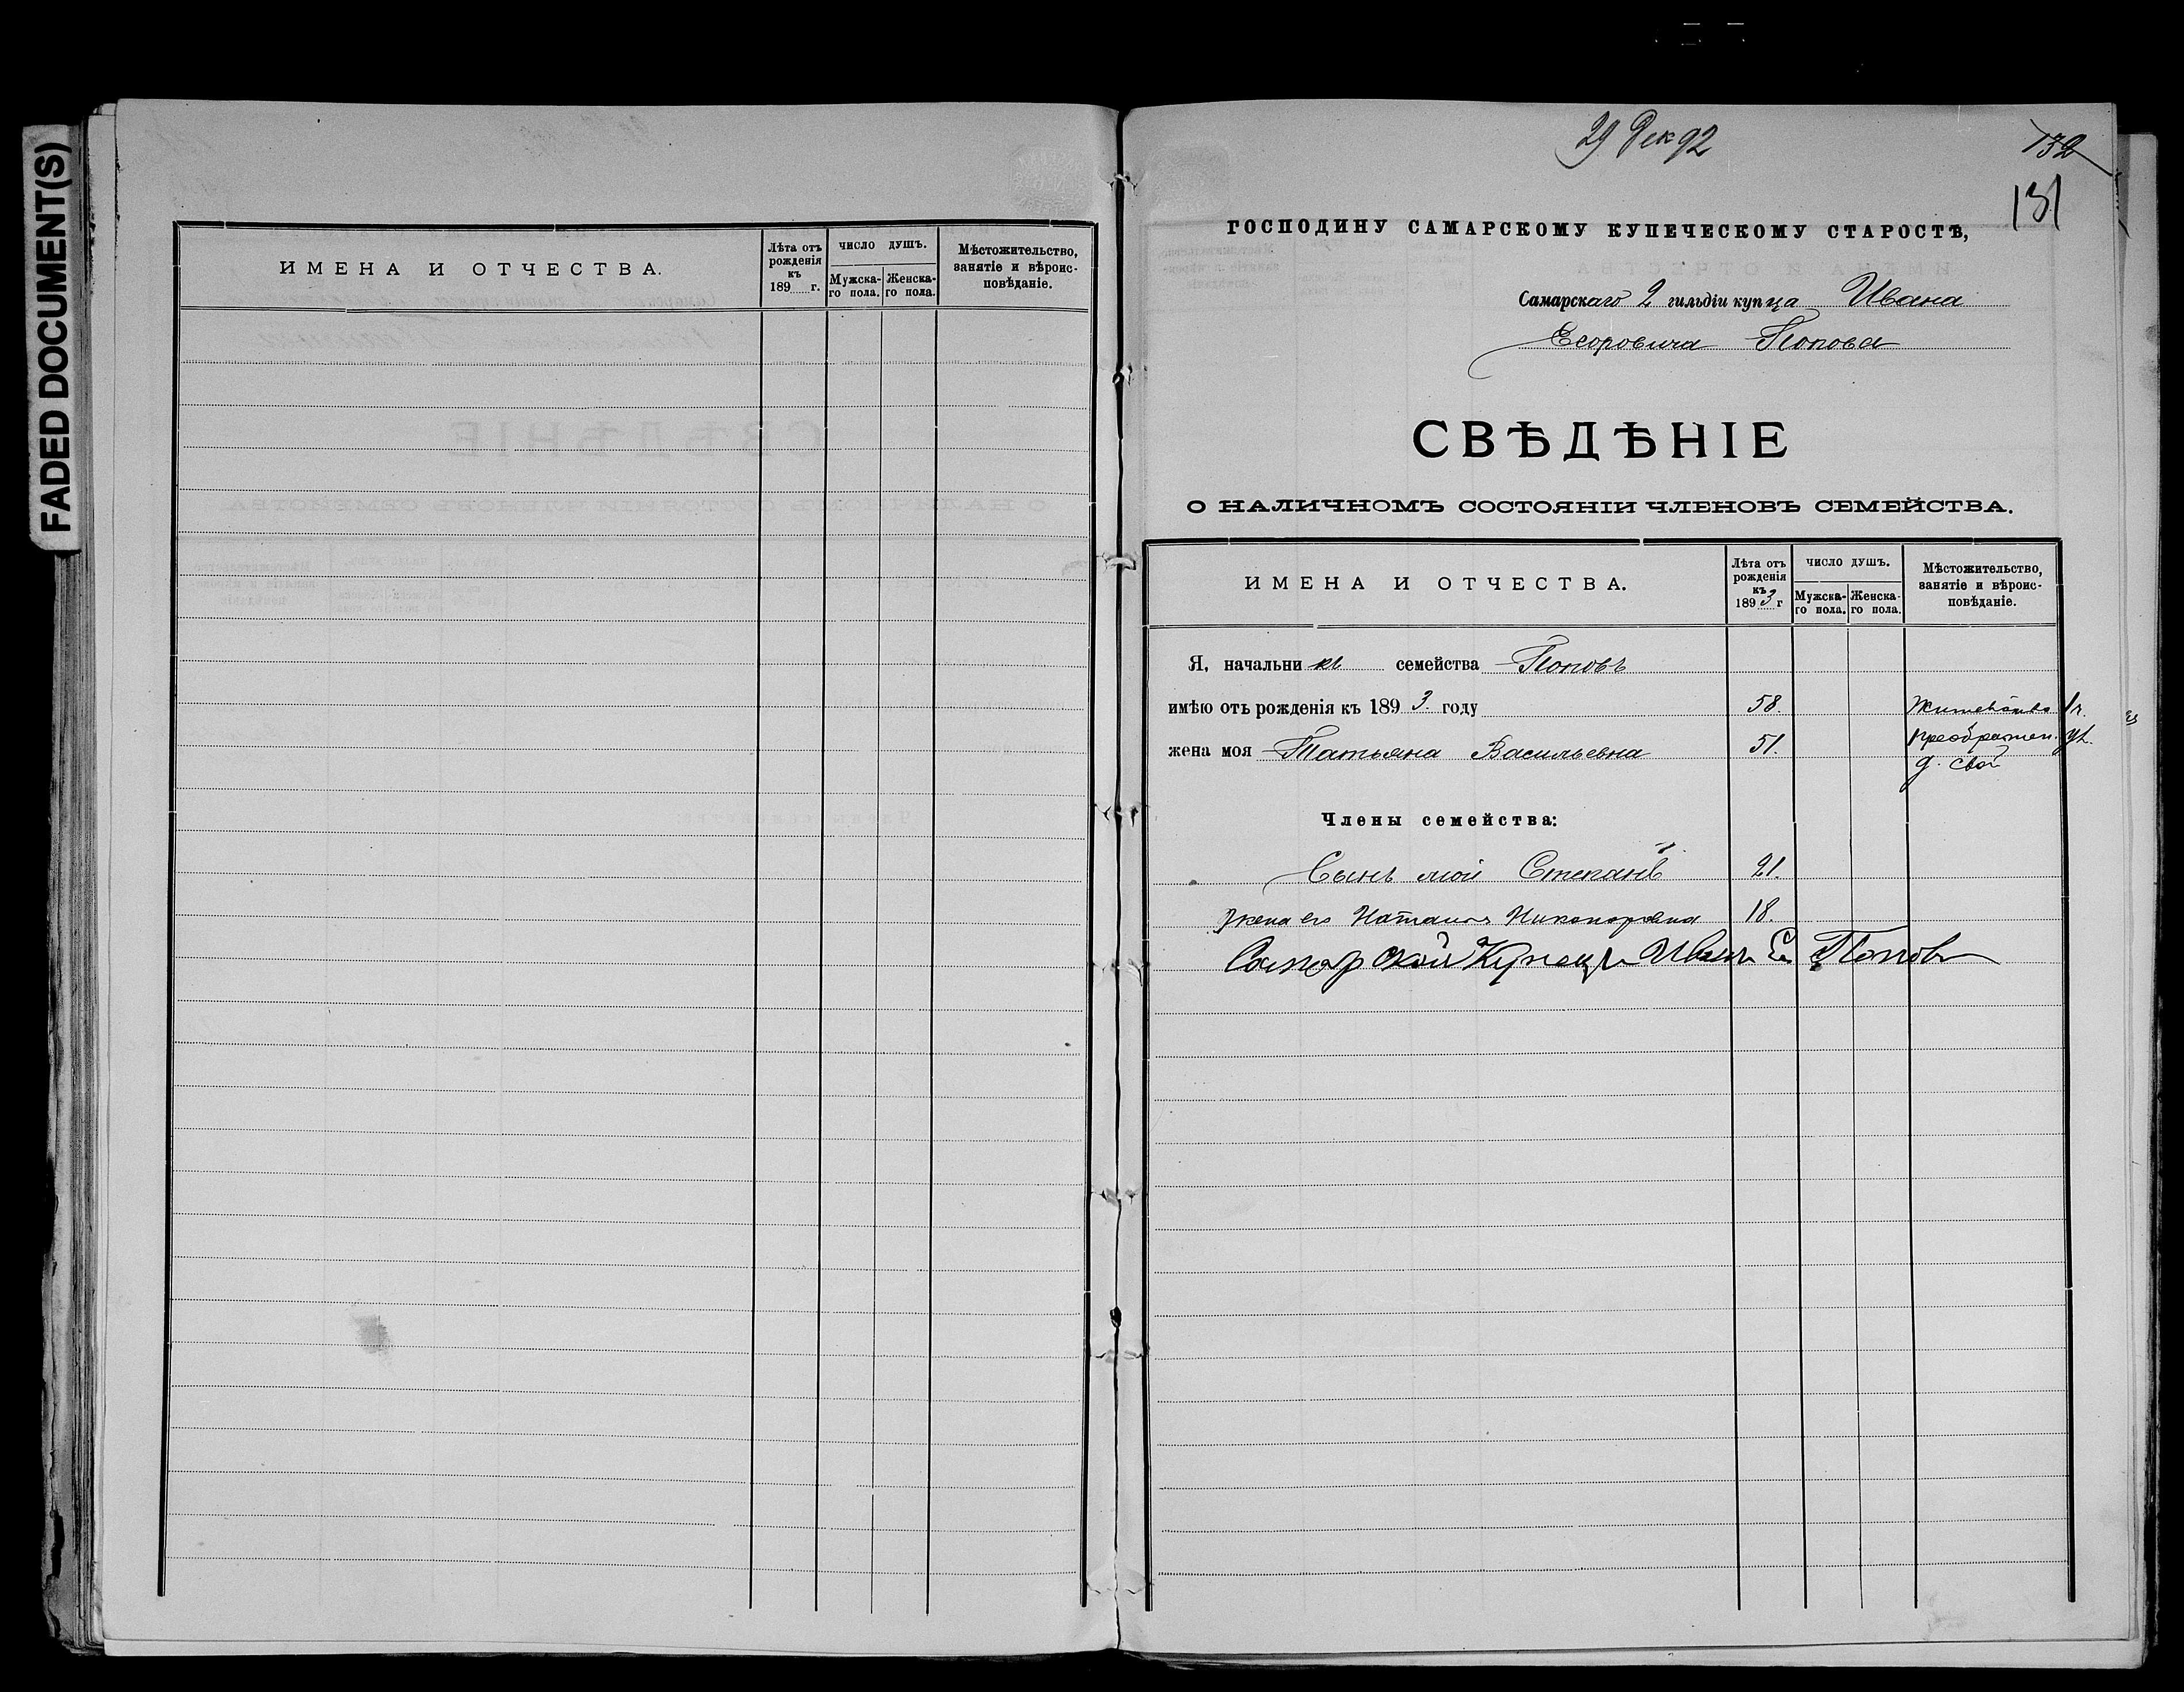 FADED DOCUMENT(S)
ИМЕНА И ОТЧЕСТВА.
Лѣта отъ рожденія къ 189 г.
ЧИСЛО ДУШЪ.
Мужска-го пола.
Женска-го пола.
Мѣстожительство, занятіе и вѣроис-повѣданіе.
29 Дек 92
132
131
ГОСПОДИНУ САМАРСКОМУ КУПЕЧЕСКОМУ СТАРОСТѢ,
Самарскаго 2 гильдіи купца Ивана
Егоровича Попова
СВѢДѢНІЕ
О НАЛИЧНОМЪ СОСТОЯНІИ ЧЛЕНОВЪ СЕМЕЙСТВА.
ИМЕНА И ОТЧЕСТВА.
Лѣта отъ рожденія къ 1893 г
ЧИСЛО ДУШЪ.
Мужска-го пола.
Женска-го пола.
Мѣстожительство, занятіе и вѣроис-повѣданіе.
Я, начальникъ семейства Поповъ
имѣю отъ рожденія къ 1893 году 58.
жена моя Татьяна Васильевна 51.
д. свой
Члены семейства:
Сынъ мой Степанъ 21.
жена его Наталья Никаноровна 18.
Самарской Купецъ Иванъ Ег Поповъ